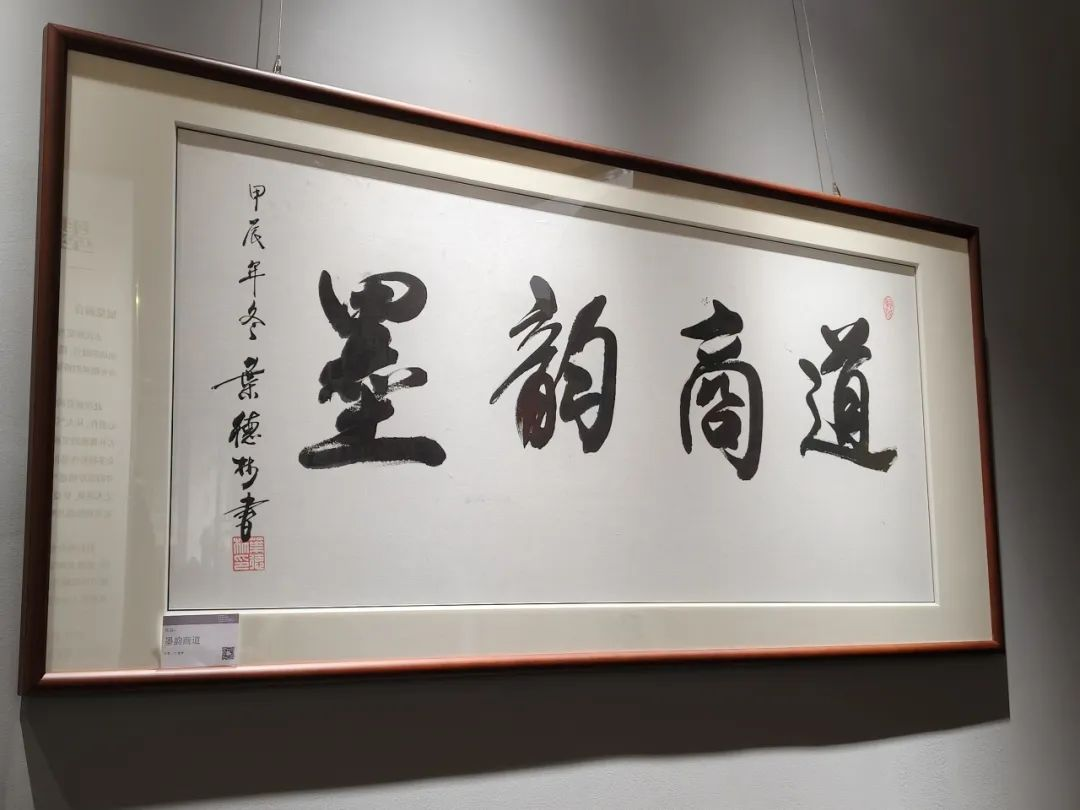 墨韵商道
甲辰年冬 葉德 書
墨韵商道